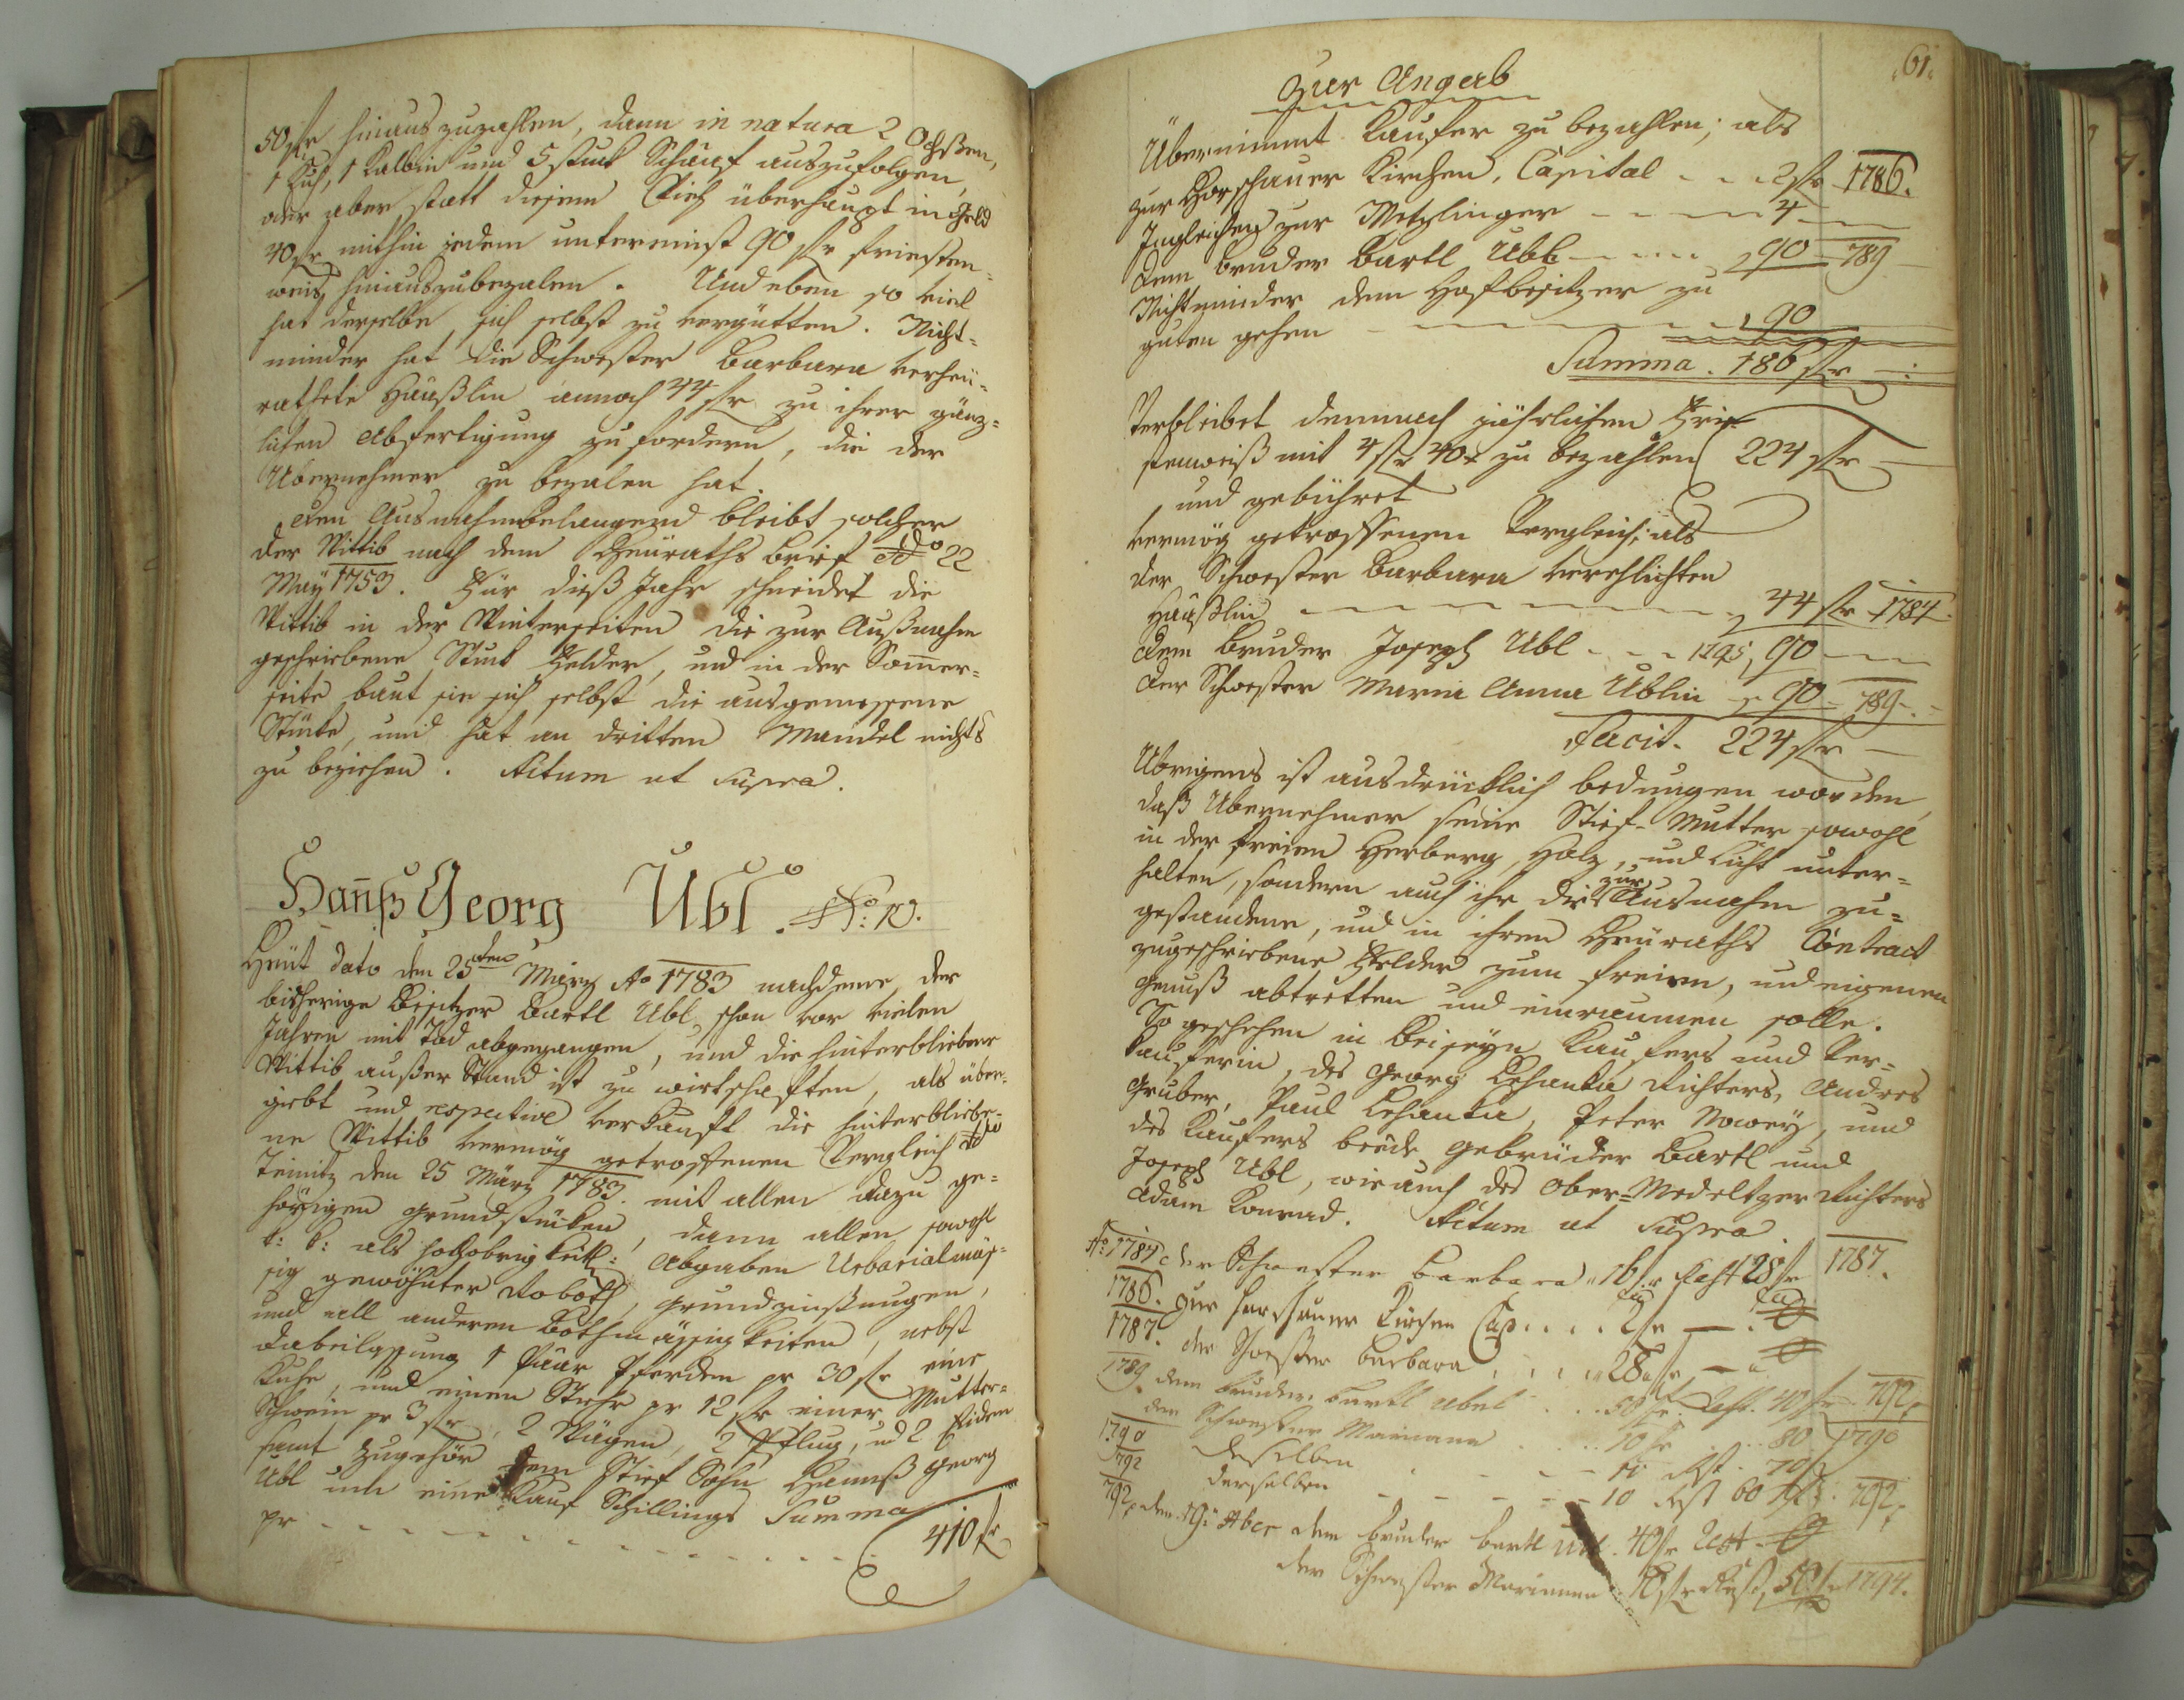 50 fr hinauszuzahlen, dann in natura 2 Ochßen,
1 Kuh, 1 Kalbin und 5 stuck Schaaf auszufolgen,
oder aber statt diesem Vieh überhaupt in Geld
40 fr mithin jedem untereinst 90 fr fristen-
weis hinauszubezalen. Und eben so viel
hat derselbe sich selbst zu vergütten. Nicht-
minder hat die Schwester Barbara verheü-
rathete Haußlin annoch 44 fr zu ihrer gänz-
lichen Abfertigung zu fordern, die der
Übernehmer zu bezalen hat.
Den Ausnahm belangend bleibt solcher
der Wittib nach dem Heüraths brief ddo 22
May 1753. Für dieß Jahr schneidet die
Wittib in der Winterseiten die zur Außnahm
geschriebene Stuck Felder, und in der Som̄er-
seite baut sie sich selbst die ausgemessene
Stücke, und hat an dritten Mandel nichts
zu beziehen. Actum ut Supra.
Han̄ß Georg Übl. No: 10.
Heüt dato den 25ten März Ao 1783 nachdeme der
bisherige Besitzer Bartl Übl schon vor vielen
Jahren mit Tod abgegangen, und die hinterbliebene
Wittib außer Stand ist zu wirtschaften, als über-
giebt und respective verkauft die hinterbliebe-
ne Wittib vermög getroffenen Vergleich ddo
Teinitz den 25 März 1783. mit allen dazu ge-
hörigen Grundstücken, dann allen sowohl
k: k: als hochobrigkeitl: Abgaben Urbarialmäs-
sig gewöhnter Roboth, Grundzinßungen,
und all anderen Bothmässigkeiten, nebst
Dabeilassung 1 Paar Pferden pr 30 fr eine
Kuhe, und einen Stiehr pr 12 fr einer Mutter-
Schwein pr 3 fr, 2 Wägen, 2 Pflug, und 2 Eiden
samt Zugehör dem Stief Sohn Hannß Georg
Übl um eine Kauf Schillings Summa
pr - - - - - - - - - - - 410 fr
61
Zur Angab
Übernimmt Kaufer zu bezahlen; als
zur Horschauer Kirchen, Capital - - - 2 fr 1786.
Ingleichen zur Metzlinger - - - - 4 -
Dem bruder Bartl Übl - - - - 90 - 789
Nichtminder dem Hofbesitzer zu
guten gehen - - - - - - 90
Summa. 186 fr -:
Verbleibet demnach jährlichen Fri-
stenweiß mit 4 fr 40 x zu bezahlen 224 fr
und gebühret
vermög getroffenen Vergleich; als
der Schwester Barbara verehlichten
Haußlin - - - - - - - - 44 fr 1784.
Dem Bruder Joseph Übl - - - 1795, 90 - -
Der Schwester Maria Anna Üblin - 90 - 789 -
Facit. 224 fr -
Übrigens ist ausdrücklich bedungen worden,
daß Übernehmer seine Stief-Mutter sowohl
in der freien Herberg, Holz, und Licht unter-
halten, sondern auch ihr die zur Ausnahm zu-
gestandene, und in ihren Heüraths Contract
zugeschriebene Felder zum freien, und eigenen
Genuß abtretten und einraumen solle.
So geschehen in Beiseyn Kaufers und Ver-
kauferin, des Georg Lehanka Richters, Andres
Gruber, Paul Lehanka, Peter Nowey, und
des Kaufers beede Gebrüder Bartl und
Joseph Übl, wie auch des Ober-Medeltzer Richters
Adam Konrad. Actum ut Supra
Ao 1784 der Schwester Barbara 16 fr Rest 28 fr 1787.
1786. zur Horschauer Kirchen Cap. . . . 2 fr - .
1787. der Schwester Barbara . . . . 28 fr -
1789 dem bruder bartl Übel . . 50 fr. Rest. 40 fr 792.
der Schwester Mariana . . . . 10 fr . . 80 1790
1790 deselben . - - - 10 Rest. 70
792 derselben - - - - - 10 Rest 60 fr. 792.
792 den 19 8ber dem bruder bartl Übl. 40 fr Rest
der Schwester Marianna 10 fr Rest, 50 fr 1794.